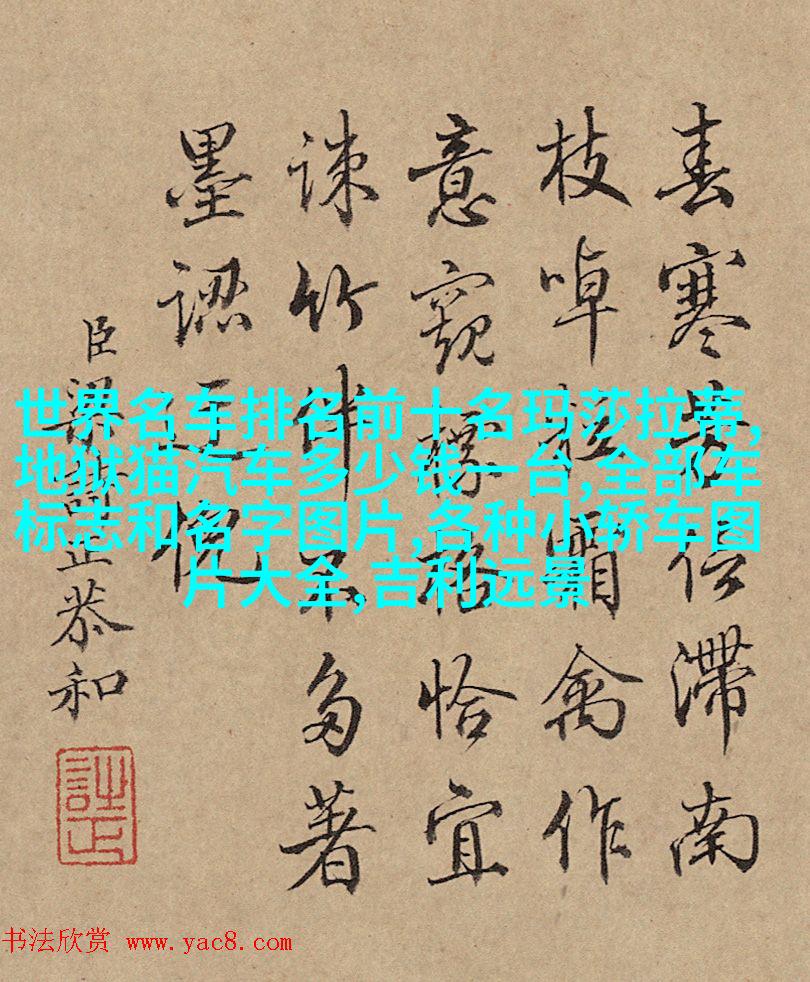 世界名车排名前十名玛莎拉蒂,
地狱猫汽车多少钱一台,全部车
标志和名字图片,各种小轿车图
片大全,吉利远景
春寒信滯南
枝啅禽作
意窺恰宜
詠竹不多著
墨認愧
臣梁詩正恭和
书法欣赏 www.yac8.com